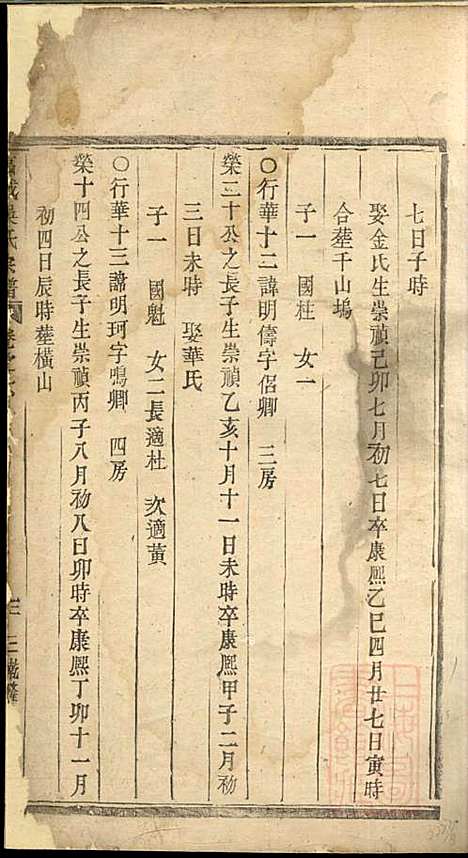 七日子時
娶金氏生崇禎己卯七月初七日卒康熙乙巳四月廿七日寅時
合塟千山塢
子一　國柱　女一
○行華十二諱明儔字侶卿　三房
榮三十公之長子生崇禎乙亥十月十一日未時卒康熙甲子二月初
三日未時　娶華氏
子一　國魁　女二長適杜　次適黃
○行華十三諱明珂字鳴卿　四房
榮十四公之長子生崇禎丙子八月初八日卯時卒康熙丁卯十一月
初四日辰時塟橫山
城吳氏宗譜